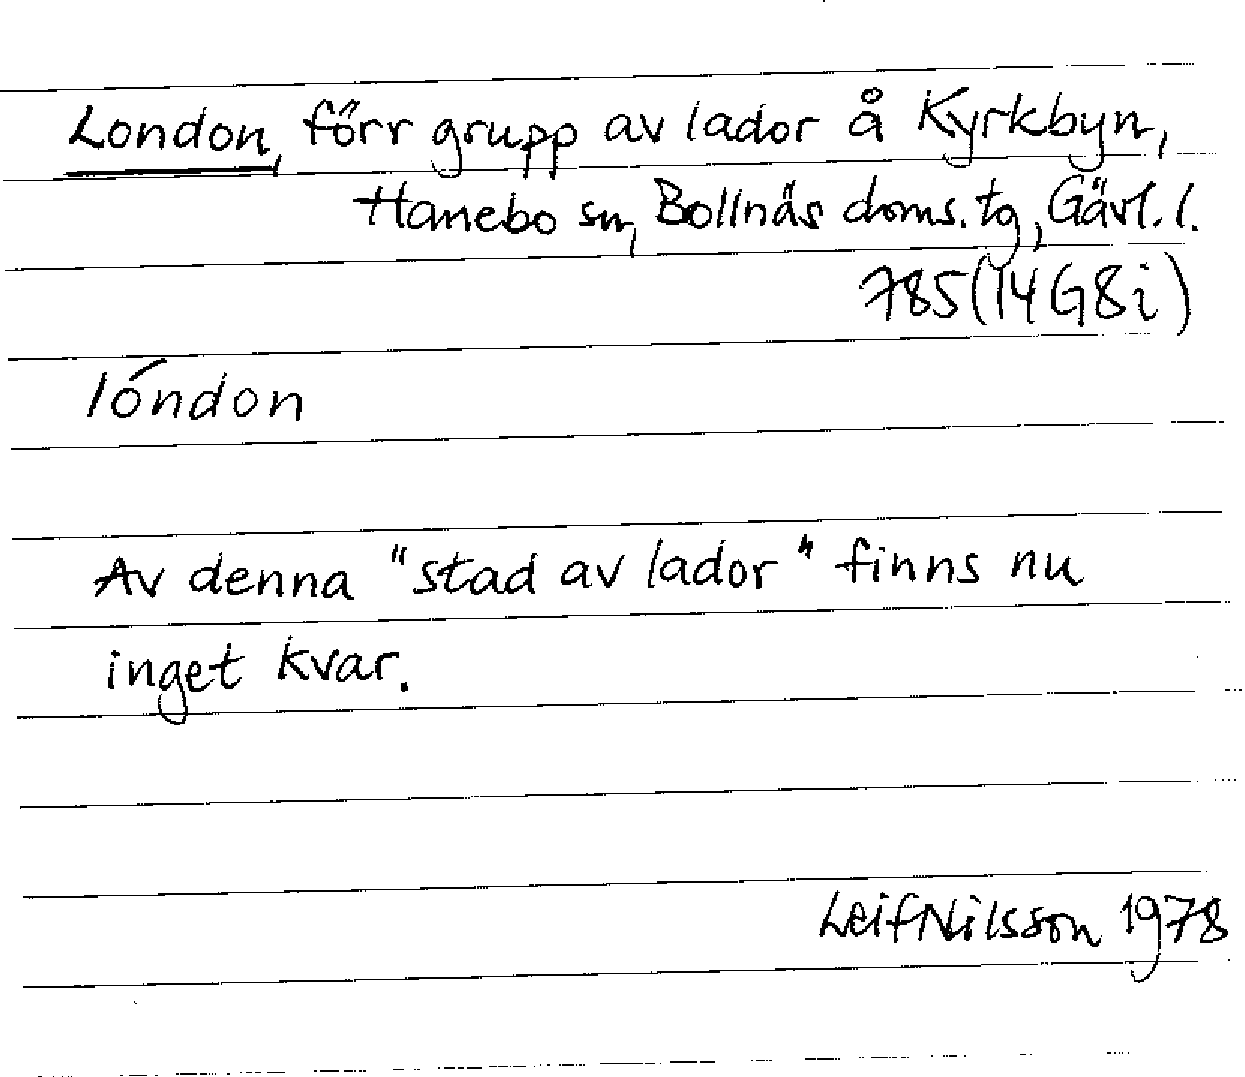 London, förr grupp av lador å Kyrkbyn,
Hanebo sn, Bollnäs doms. tg, Gävl. l.
785 (14G8i)
lóndon
Av denna "stad av lador" finns nu
inget kvar.
Leif Nilsson 1978